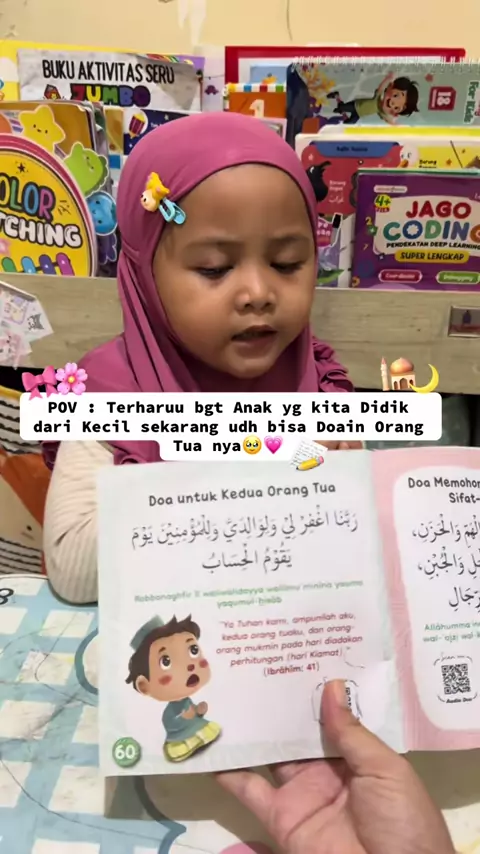 BUKU AKTIVITAS SERU
JUMBO
COLOR
MATCHING
1
18
For Kids
4+
JAGO
CODING
PENDEKATAN DEEP LEARNING
SUPER LENGKAP
POV : Terharuu bgt Anak yg kita Didik
dari Kecil sekarang udh bisa Doain Orang
Tua nya🥹💗
Doa untuk Kedua Orang Tua
رَبَّنَا اغْفِرْ لِيْ وَلِوَالِدَيَّ وَلِلْمُؤْمِنِيْنَ يَوْمَ
يَقُوْمُ الْحِسَابُ
Rabbanaghfir lī waliwālidayya walilmu'minīna yauma
yaqūmul-ḥisāb
"Ya Tuhan kami, ampunilah aku,
kedua orang tuaku, dan orang-
orang mukmin pada hari diadakan
perhitungan (hari Kiamat)."
(Ibrāhīm: 41)
60
Doa Memohon
Sifat-
الْهَمِّ وَالْحَزَنِ،
وَالْجُبْنِ،
الرِّجَالِ
Allāhumma in
wal-'ajzi wal-k
Audio Doa